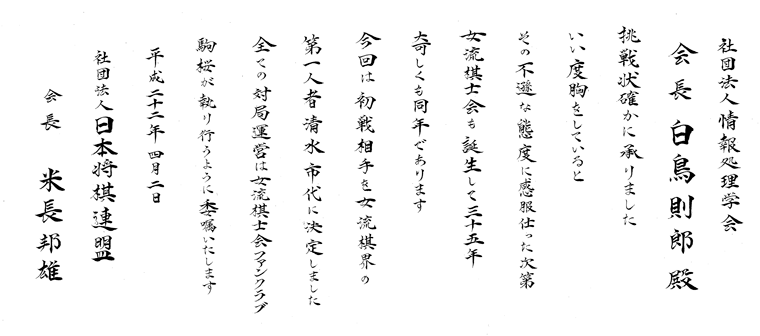 社団法人情報処理学会
会長 白鳥則郎殿
挑戦状確かに承りました
いい度胸をしていると
その不遜な態度に感服仕った次第
女流棋士会も誕生して三十五年
奇しくも同年であります
今回は初戦相手を女流棋界の
第一人者清水市代に決定しました
全ての対局運営は女流棋士会ファンクラブ
駒桜が執り行うように委嘱いたします
平成二十二年四月二日
社団法人日本将棋連盟
会長 米長邦雄